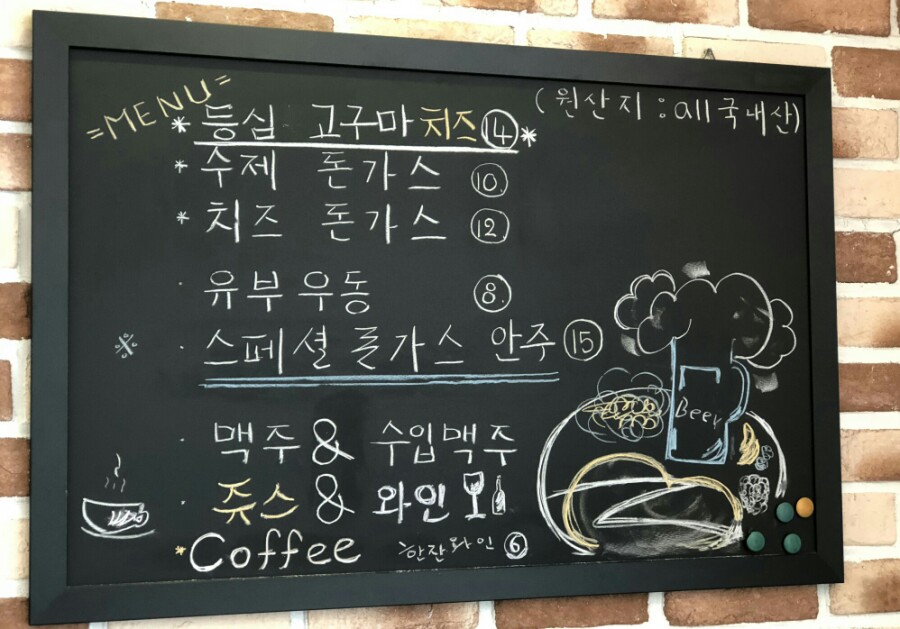 =MENU=
(원산지 : all 국내산)
* 등심 고구마 치즈 14 *
* 수제 돈가스 10.
* 치즈 돈가스 12
· 유부우동 8.
※ · 스페셜 돈가스 안주 15
· 맥주 & 수입맥주
· 쥬스 & 와인
* Coffee
※한잔와인 6
Beer